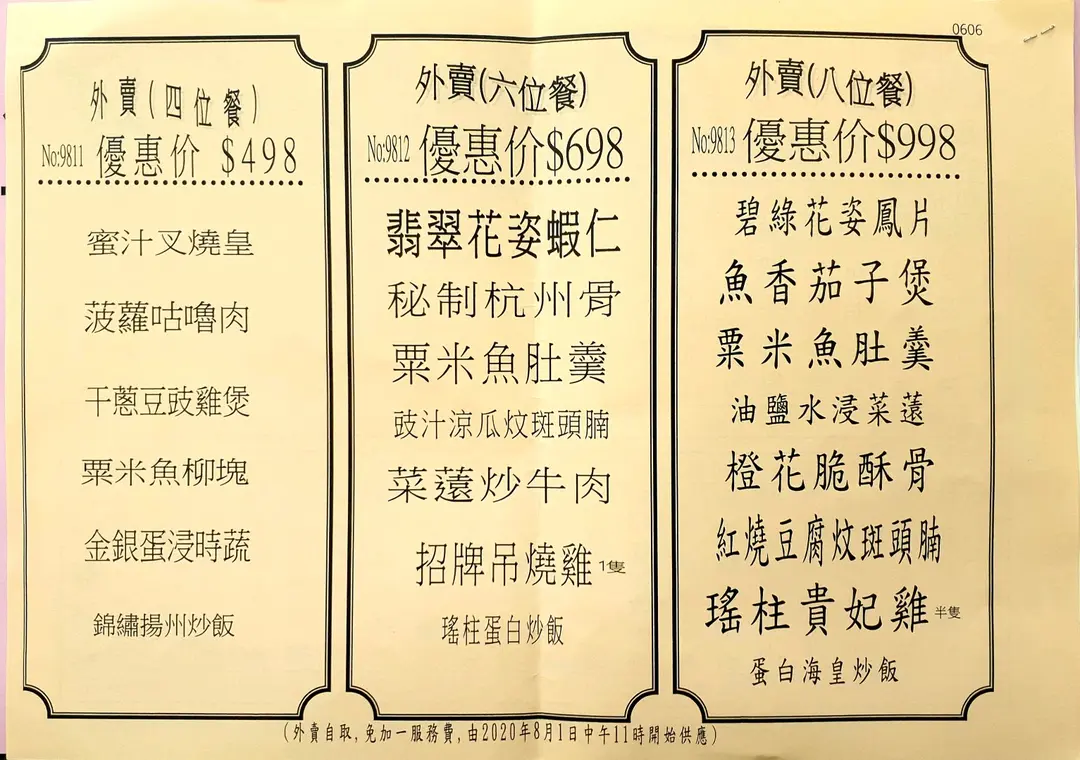 0606
外賣(四位餐)
No:9811 優惠价 $498
蜜汁叉燒皇
菠蘿咕嚕肉
干蔥豆豉雞煲
粟米魚柳塊
金銀蛋浸時蔬
錦繡揚州炒飯
外賣(六位餐)
No:9812 優惠价$698
翡翠花姿蝦仁
秘制杭州骨
粟米魚肚羹
豉汁涼瓜炆斑頭腩
菜薳炒牛肉
招牌吊燒雞 1隻
瑤柱蛋白炒飯
外賣(八位餐)
No:9813 優惠价$998
碧綠花姿鳳片
魚香茄子煲
粟米魚肚羹
油鹽水浸菜薳
橙花脆酥骨
紅燒豆腐炆斑頭腩
瑤柱貴妃雞 半隻
蛋白海皇炒飯
(外賣自取,免加一服務費,由2020年8月1日中午11時開始供應)